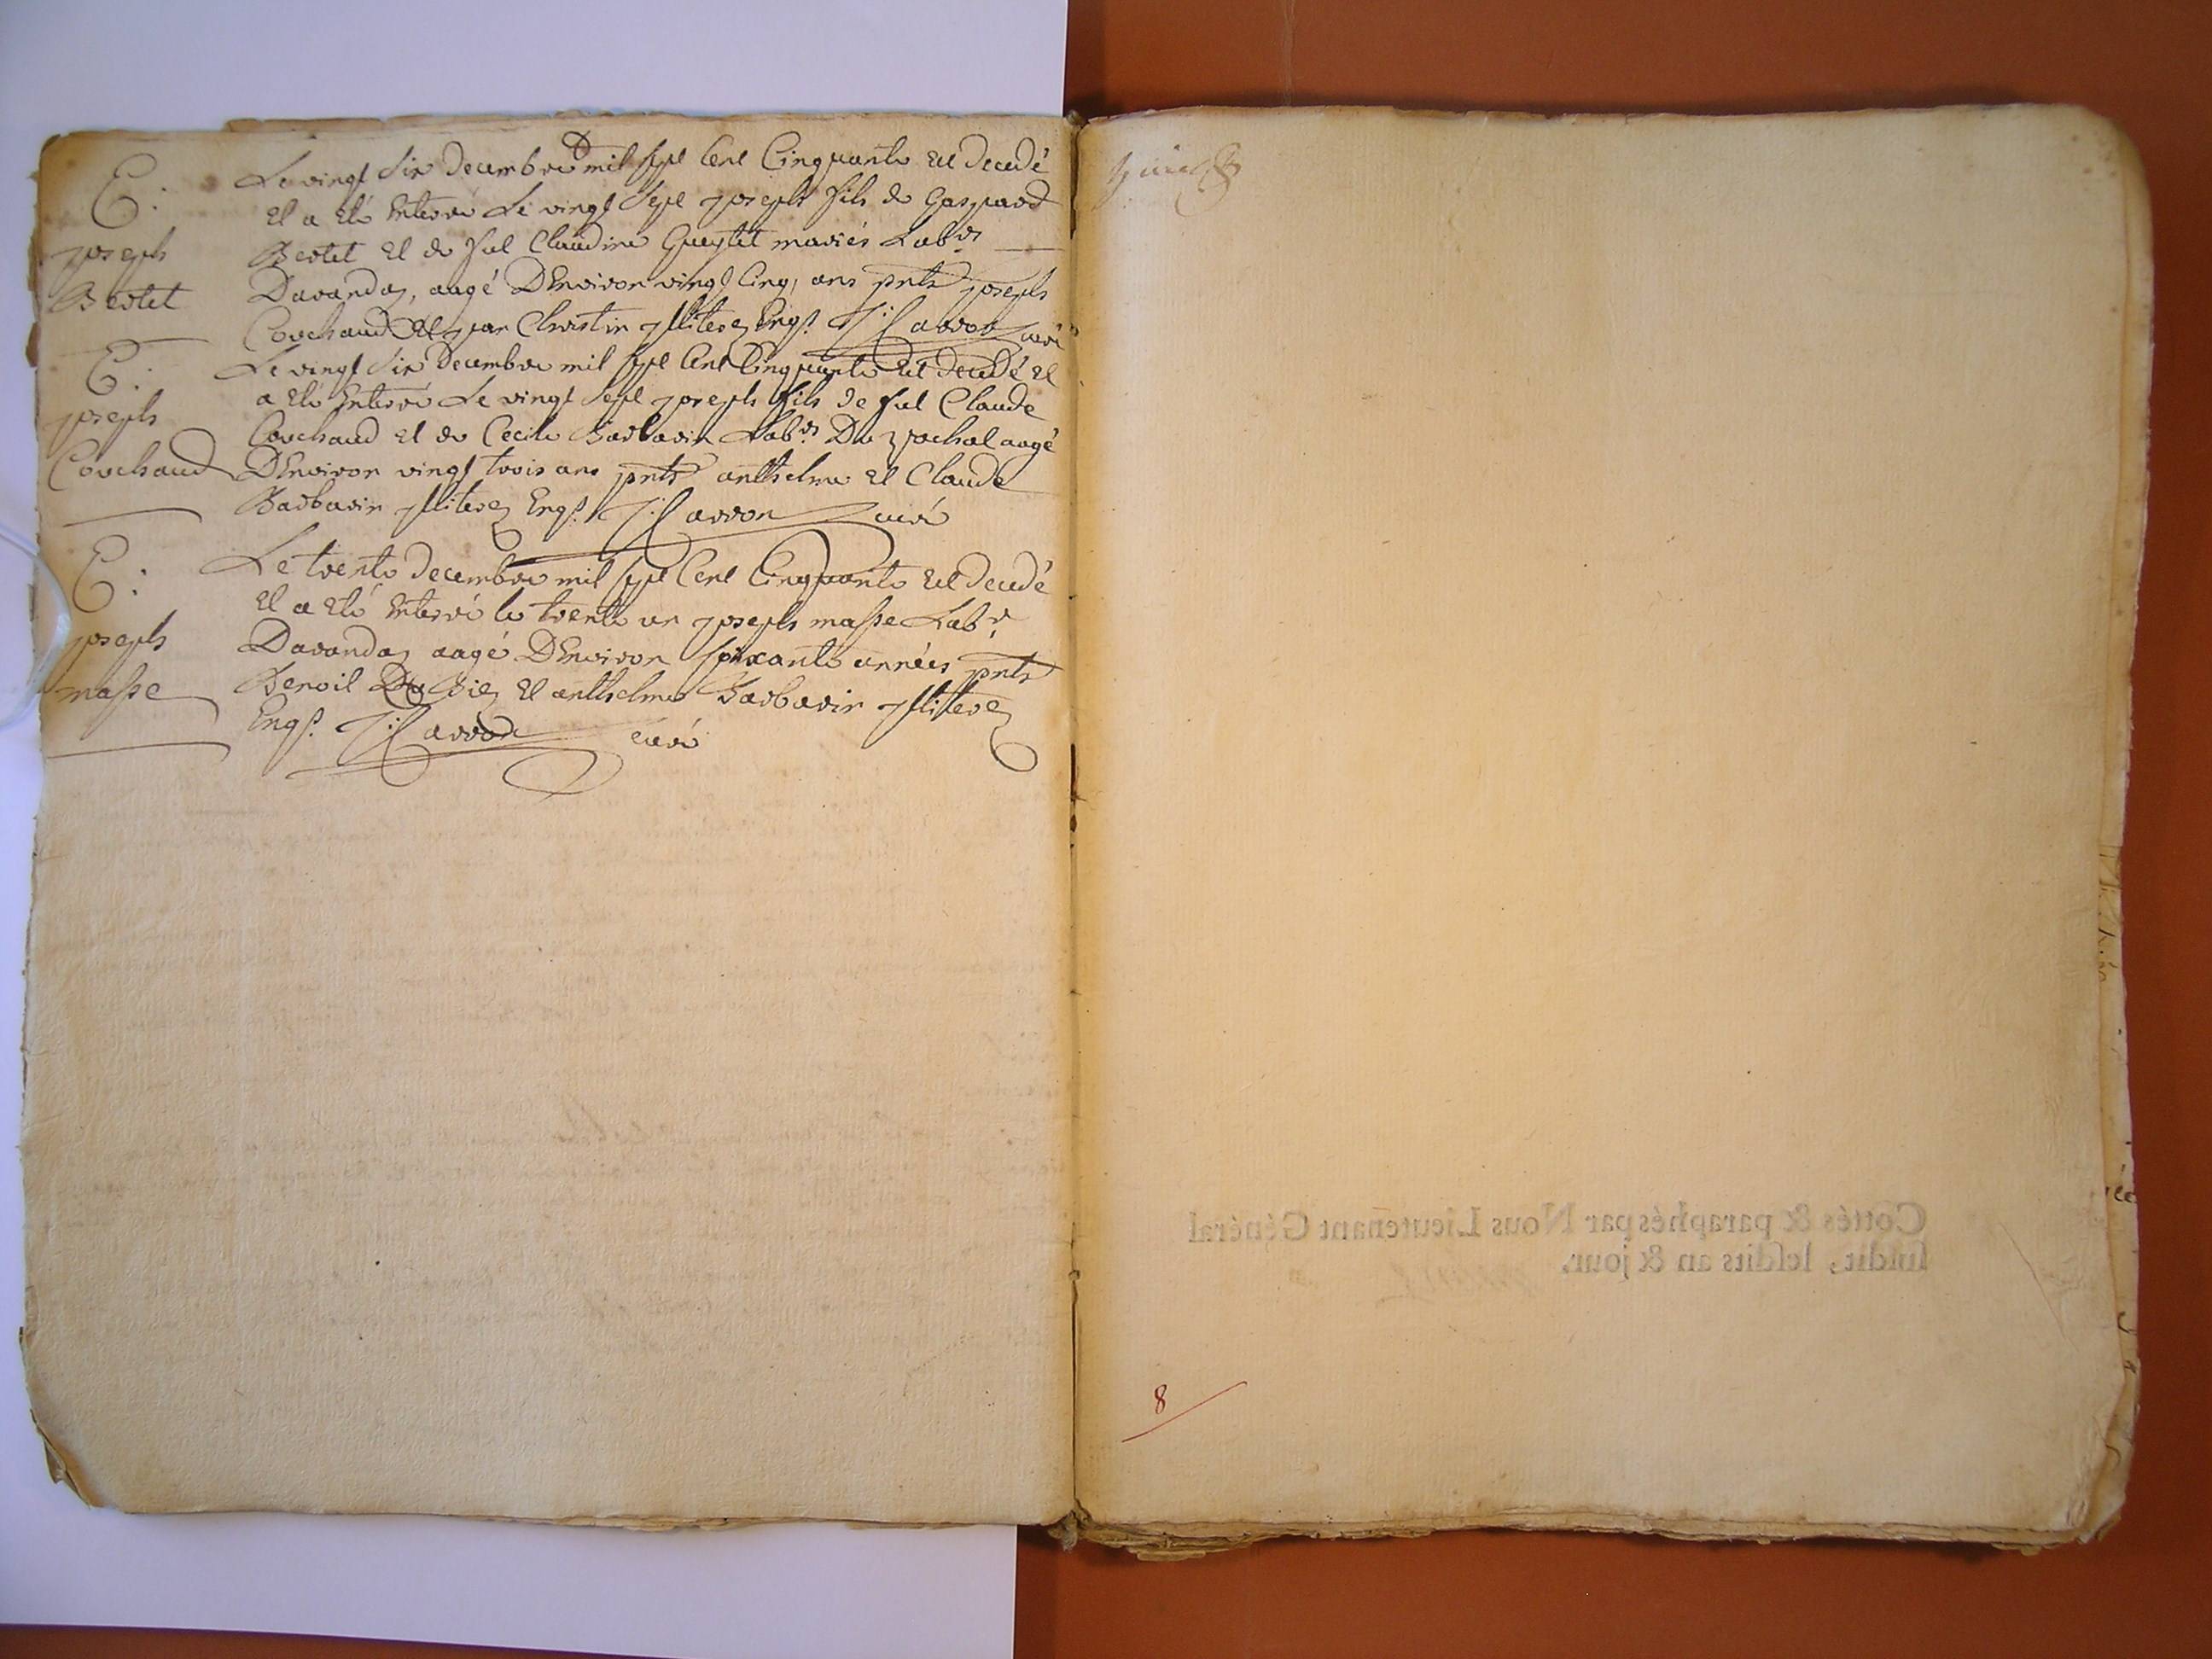 E:
joseph
Bertet
Le vingt six decembre mil sept Cent Cinquante est decedé
et a eté Enterré Le vingt sept joseph fils de Gaspard
Bertet et de fut Claudine mariés Labrs
Davanda, aagé DEnviron vingt cinq ans pnts joseph
Couchaud et Christin jllitere Engs. curé
E:
joseph
Couchaud
Le vingt six decembre mil sept Cent Cinquante est decedé et
a eté Enterré Le vingt sept joseph fils de fut Claude
Couchaud et de Cecile Barbarin Labrs Du aagé
DEnviron vingt trois ans pnts anthelme et Claude
Barbarin jllitere Engs. J: Carron curé
E:
joseph
masse
Le trente decembre mil sept Cent Cinquante est decedé
et a eté Enterré le trente un joseph masse Labr
Davanda aagé DEnviron soixante années pnts
Benoit et anthelme Barbarin jllitere
Engs. J: Carron curé
Cottés & paraphés par Nous Lieutenant Général
susdit, lesdits an & jour.
8